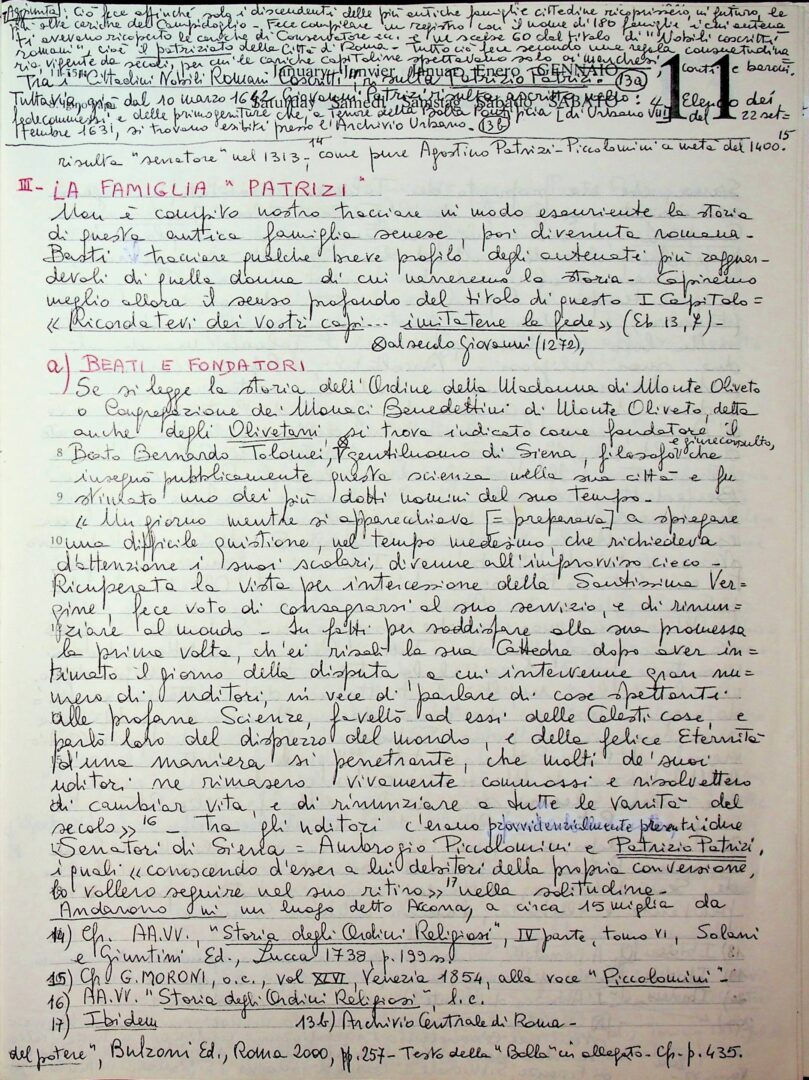 Aggiunta: Ciò fece affinché solo i discendenti delle più antiche famiglie cittadine ricoprissero in futuro, le
più alte cariche del Campidoglio - Fece compilare un registro con il nome di 180 famiglie i cui antena-
ti avevano ricoperto le cariche di Conservatore ecc. e ne scelse 60 dal titolo di "Nobili coscritti
romani", cioè il patriziato della Città di Roma - Tutto ciò fece secondo una regola consuetudina-
ria vigente da secoli, per cui le cariche capitoline spettavano solo ai marchesi, conti e baroni.
January Janvier Januar Enero GENNAIO
11
Tra i "Cittadini Nobili Romani Coscritti" risulta "Patrizio Patrizi" - (13a)
Saturday Samedi Samstag Sábado SABATO
Tuttavia già dal 10 marzo 1642 Giovanni Patrizi risulta ascritto nello: Elenco dei
fedecommessi e delle primogeniture che, a tenore della Bolla Pontificia [di Urbano VIII] del 22 set-
tembre 1631, si trovano esibiti presso l'Archivio Urbano. (13b)
risulta "senatore" nel 1313,14 come pure Agostino Patrizi-Piccolomini a metà del 1400.15
III - LA FAMIGLIA "PATRIZI"
Non è compito nostro tracciare in modo esauriente la storia
di questa antica famiglia senese, poi divenuta romana -
Basti tracciare qualche breve profilo degli antenati più ragguar-
devoli di quella donna di cui narreremo la storia - Capiremo
meglio allora il senso profondo del titolo di questo I Capitolo =
« Ricordatevi dei vostri capi... imitatene la fede» (Eb 13,7) -
⊗ al secolo Giovanni (1272),
a) BEATI E FONDATORI
Se si legge la storia dell'Ordine della Madonna di Monte Oliveto
o Congregazione dei Monaci Benedettini di Monte Oliveto, detta
anche degli Olivetani, si trova indicato come fondatore il
8 Beato Bernardo Tolomei, ⊗ gentiluomo di Siena, filosofo e giureconsulto, che
insegnò pubblicamente questa scienza nella sua città e fu
9 stimato uno dei più dotti uomini del suo tempo -
« Un giorno mentre si apparecchiava [= preparava] a spiegare
10 una difficile quistione, nel tempo medesimo, che richiedeva
d'attenzione i suoi scolari, divenne all'improvviso cieco -
Ricuperata la vista per intercessione della Santissima Ver=
gine, fece voto di consagrarsi al suo servizio, e di rinun=
ziare al mondo - In fatti per soddisfare alla sua promessa
la prima volta, ch'ei risalì la sua Cattedra dopo aver in=
timato il giorno della disputa, a cui intervenne gran nu=
mero di uditori, in vece di parlare di cose spettanti
alle profane Scienze, favellò ad essi delle Celesti cose, e
parlò loro del disprezzo del mondo, e della felice Eternità
d'una maniera sì penetrante, che molti de' suoi
uditori ne rimasero vivamente commossi e risolvettero
di cambiar vita, e di rinunziare a tutte le vanità del
secolo»16 - Tra gli uditori c'erano provvidenzialmente presenti due
Senatori di Siena = Ambrogio Piccolomini e Patrizio Patrizi,
i quali « conoscendo d'esser a lui debitori della propria conversione,
lo vollero seguire nel suo ritiro»17 nella solitudine -
Andarono in un luogo detto Accona, a circa 15 miglia da
14) Cfr. AA.VV., "Storia degli Ordini Religiosi", IV parte, tomo VI, Salani
e Giuntini Ed., Lucca 1738, p. 199 ss
15) Cfr G. MORONI, o.c., vol XLVI, Venezia 1854, alla voce "Piccolomini" -
16) AA.VV. "Storia degli Ordini Religiosi", l.c.
17) Ibidem 13b) Archivio Centrale di Roma -
del potere", Bulzoni Ed., Roma 2000, pp. 257 - Testo della "Bolla" in allegato - Cfr. p. 435.